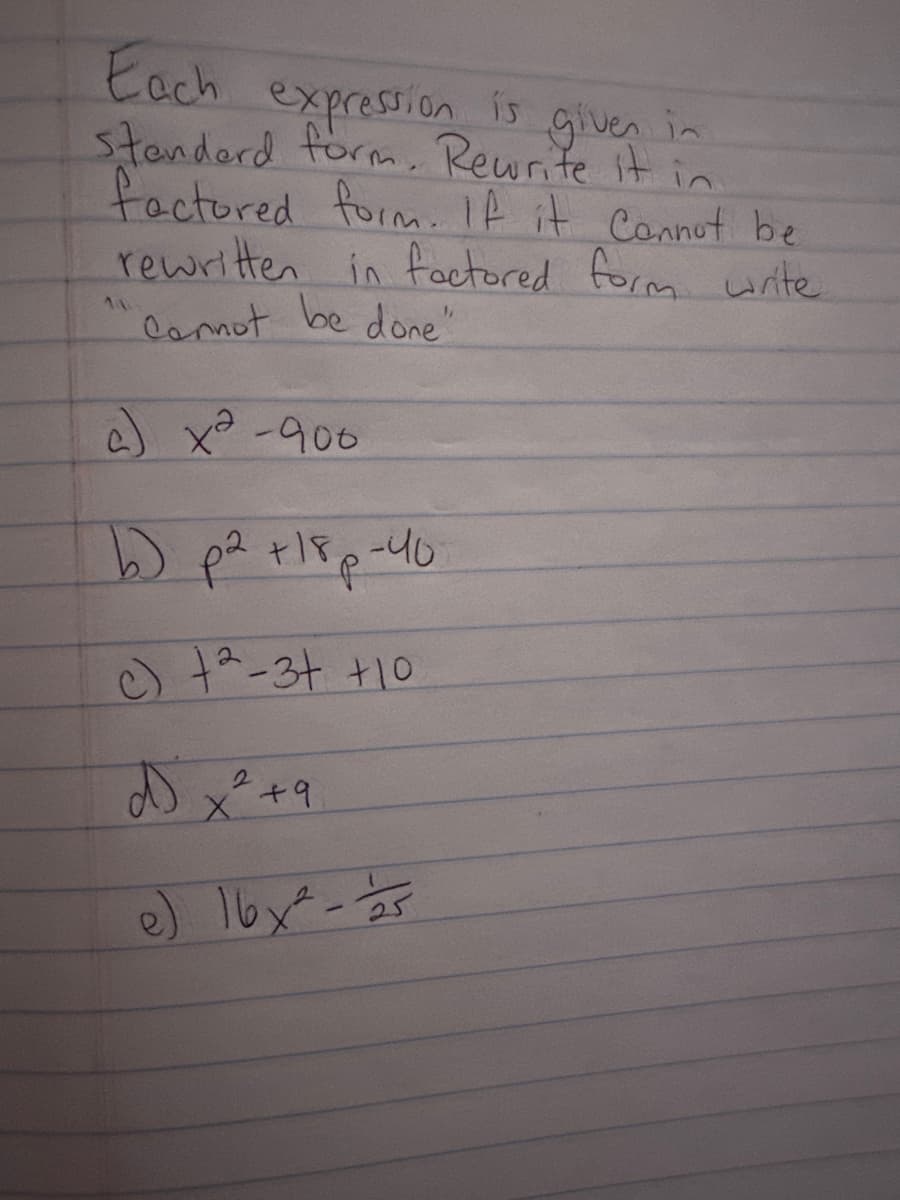 Each expression is given in
standard form. Rewrite it in
factored form. If it cannot be
rewritten in factored form write
"cannot be done"
a) x² -900
b) p² +18p-40
c) t²-3t +10
d) x² +9
e) 16x² - 1/25